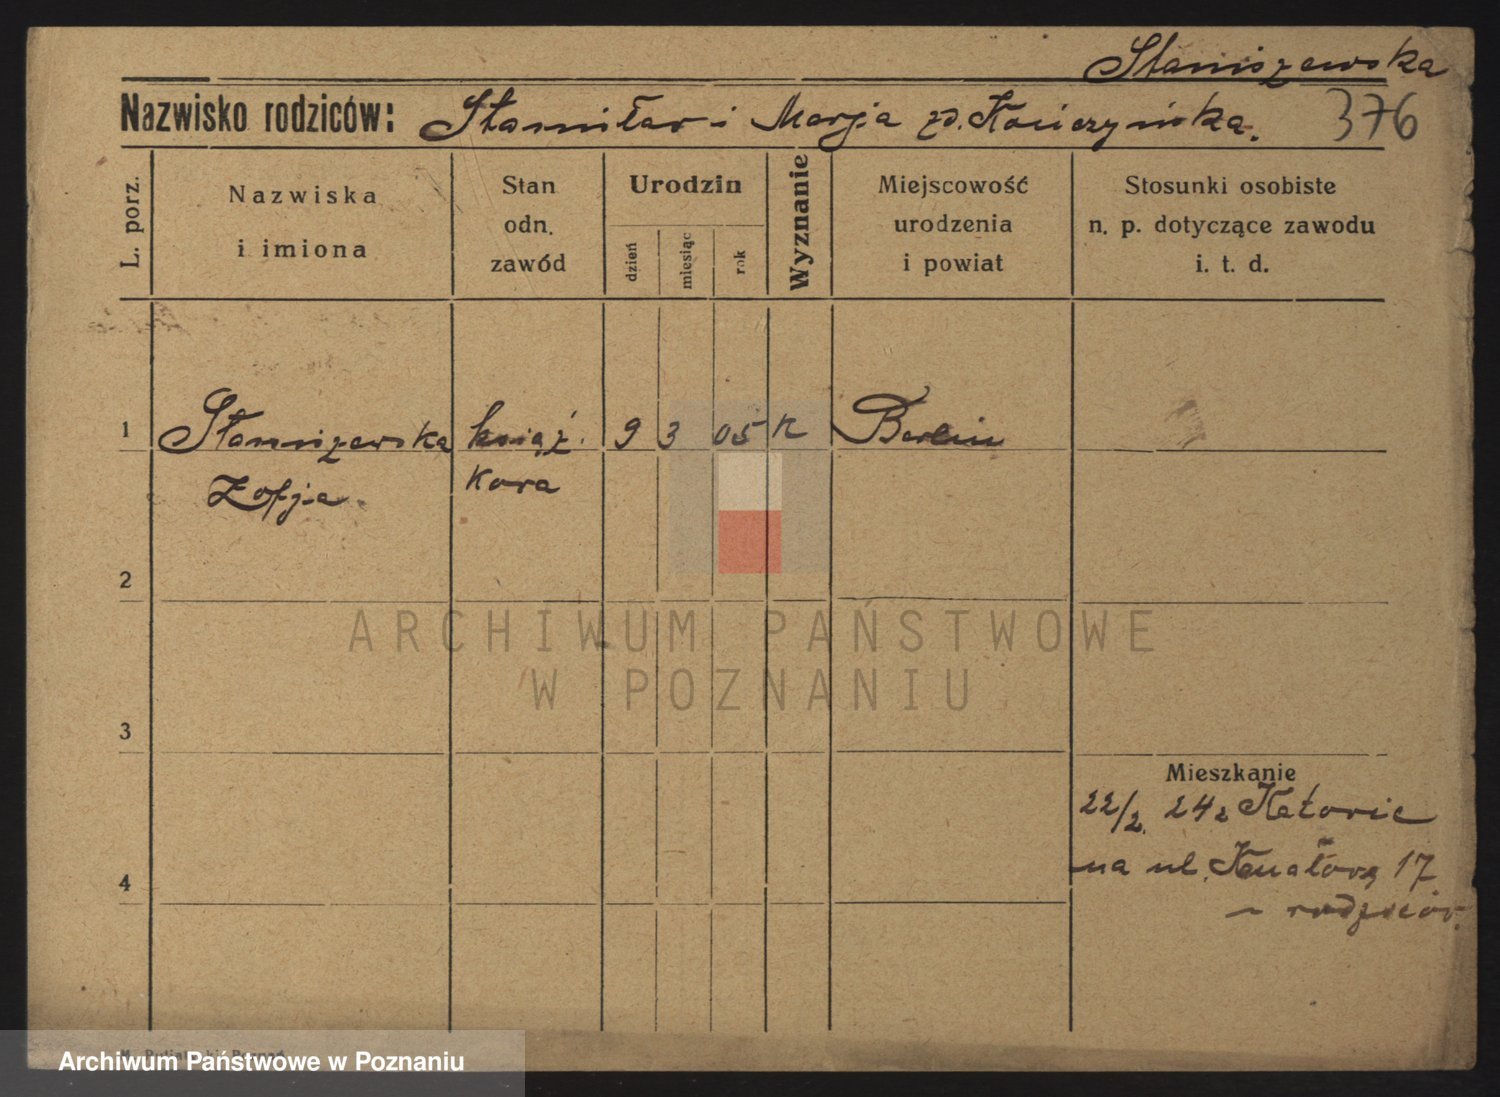 Staniszewska
Nazwisko rodziców: Stanisław i Marja zd. 376
L. porz.
Nazwiska
i imiona
Stan
odn.
zawód
Urodzin
dzień
miesiąc
rok
Wyznanie
Miejscowość
urodzenia
i powiat
Stosunki osobiste
n. p. dotyczące zawodu
i. t. d.
1 Staniszewska książ. 9 3 05 K Berlin
Zofja kowa
2
ARCHIWUM PAŃSTWOWE
W POZNANIU
3
Mieszkanie
22/2. 24 z Katowic
4
na ul. 17
rodziców.
Archiwum Państwowe w Poznaniu